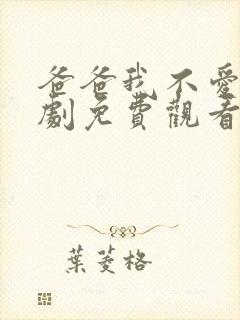 爸爸我不愛
劇免費觀看
葉菱格